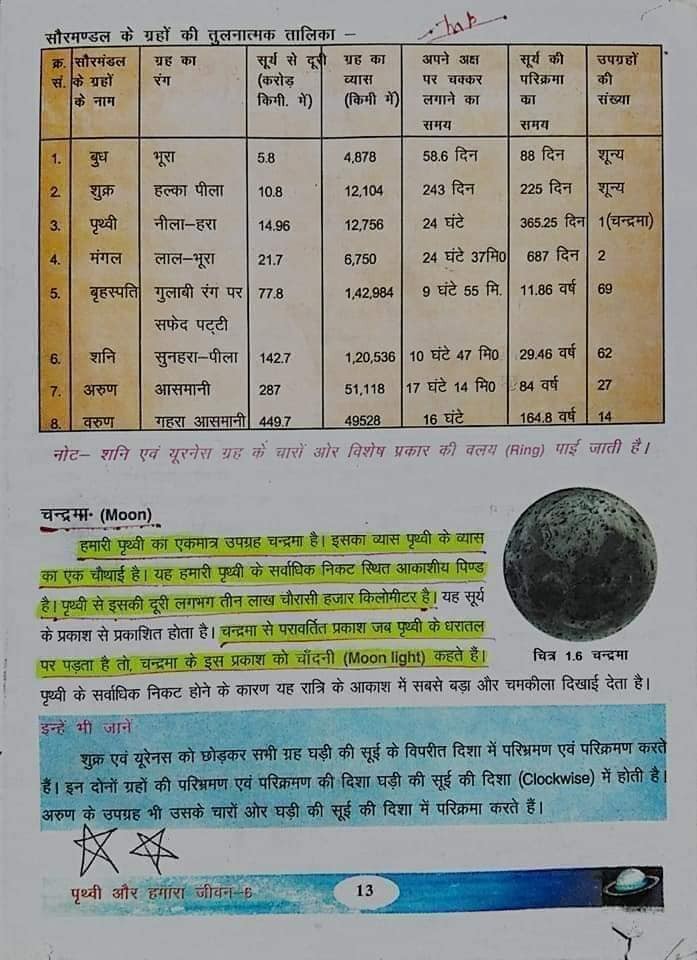 सौरमण्डल के ग्रहों की तुलनात्मक तालिका –
क्र. सं. सौरमंडल के ग्रहों के नाम ग्रह का रंग सूर्य से दूरी (करोड़ किमी. में) ग्रह का व्यास (किमी में) अपने अक्ष पर चक्कर लगाने का समय सूर्य की परिक्रमा का समय उपग्रहों की संख्या
1. बुध भूरा 5.8 4,878 58.6 दिन 88 दिन शून्य
2. शुक्र हल्का पीला 10.8 12,104 243 दिन 225 दिन शून्य
3. पृथ्वी नीला–हरा 14.96 12,756 24 घंटे 365.25 दिन 1(चन्द्रमा)
4. मंगल लाल–भूरा 21.7 6,750 24 घंटे 37मि0 687 दिन 2
5. बृहस्पति गुलाबी रंग पर 77.8 1,42,984 9 घंटे 55 मि. 11.86 वर्ष 69
सफेद पट्टी
6. शनि सुनहरा–पीला 142.7 1,20,536 10 घंटे 47 मि0 29.46 वर्ष 62
7. अरुण आसमानी 287 51,118 17 घंटे 14 मि0 84 वर्ष 27
8. वरुण गहरा आसमानी 449.7 49528 16 घंटे 164.8 वर्ष 14
नोट– शनि एवं यूरनेस ग्रह के चारों ओर विशेष प्रकार की वलय (Ring) पाई जाती है।
चन्द्रमा- (Moon)
हमारी पृथ्वी का एकमात्र उपग्रह चन्द्रमा है। इसका व्यास पृथ्वी के व्यास
का एक चौथाई है। यह हमारी पृथ्वी के सर्वाधिक निकट स्थित आकाशीय पिण्ड
है। पृथ्वी से इसकी दूरी लगभग तीन लाख चौरासी हजार किलोमीटर है। यह सूर्य
के प्रकाश से प्रकाशित होता है। चन्द्रमा से परावर्तित प्रकाश जब पृथ्वी के धरातल
पर पड़ता है तो, चन्द्रमा के इस प्रकाश को चाँदनी (Moon light) कहते हैं।
चित्र 1.6 चन्द्रमा
पृथ्वी के सर्वाधिक निकट होने के कारण यह रात्रि के आकाश में सबसे बड़ा और चमकीला दिखाई देता है।
इन्हें भी जानें
शुक्र एवं यूरेनस को छोड़कर सभी ग्रह घड़ी की सूई के विपरीत दिशा में परिभ्रमण एवं परिक्रमण करते
हैं। इन दोनों ग्रहों की परिभ्रमण एवं परिक्रमण की दिशा घड़ी की सूई की दिशा (Clockwise) में होती है।
अरुण के उपग्रह भी उसके चारों ओर घड़ी की सूई की दिशा में परिक्रमा करते हैं।
पृथ्वी और हमारा जीवन–6
13